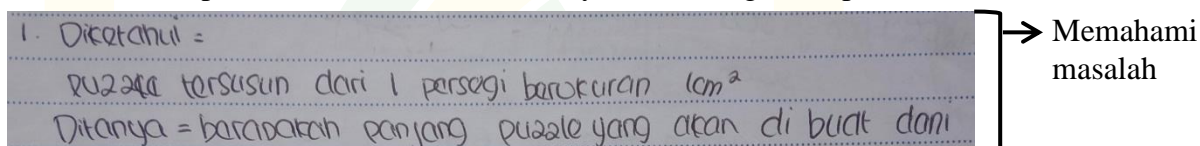 1. Diketahui =
puzzle tersusun dari 1 persegi berukuran 1cm²
Ditanya = berapakah panjang puzzle yang akan di buat doni
Memahami
masalah